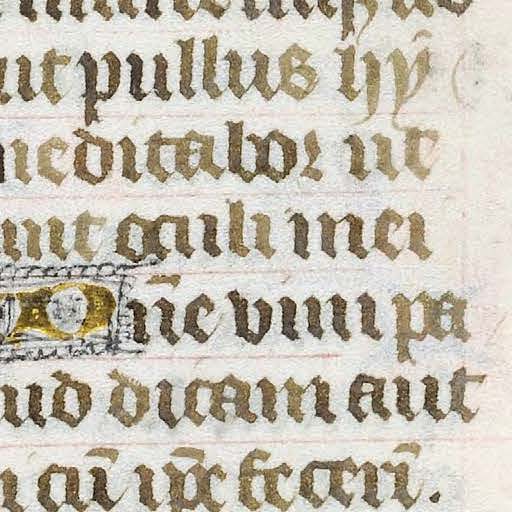 ut pullus hÿ
meditabor ut
unt oculi mei
Dñe vim pa
uid dicam aut
cũ ip̃e fecerĩ.